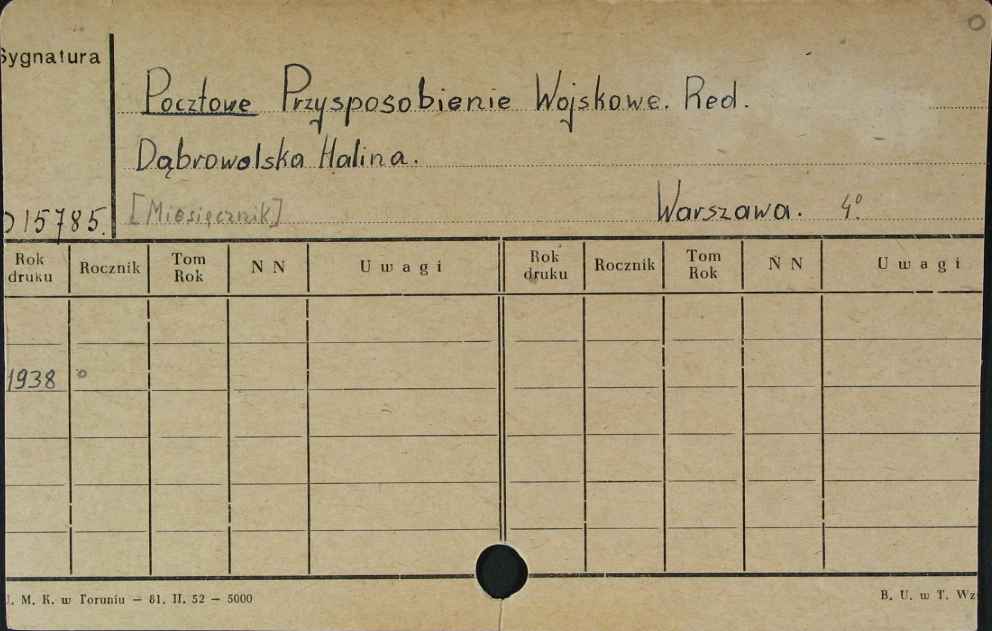 Sygnatura
Pocztowe Przysposobienie Wojskowe. Red.
Dąbrowolska Halina.
015785. [Miesięcznik] Warszawa. 4º
Rok druku Rocznik Tom Rok N N Uwagi Rok druku Rocznik Tom Rok N N Uwagi
1938 º
U. M. K. w Toruniu — 81. II. 52 — 5000 B. U. w T. Wz